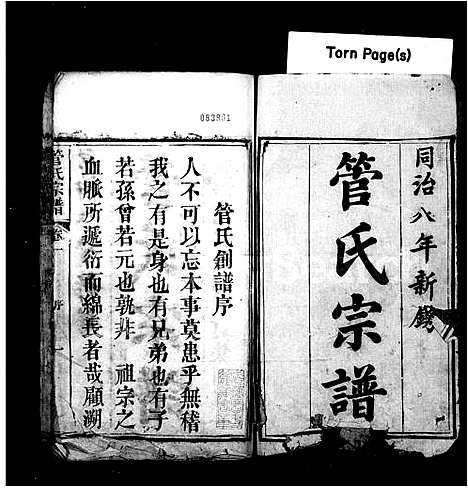 Torn Page(s)
同治八年新鐫
管氏宗譜
管氏創譜序
人不可以忘本事莫患乎無稽
我之有是身也有兄弟也有子
若孫曾若元也孰非　祖宗之
血脈所遞衍而綿長者哉顧溯
管氏宗譜
卷一
序
一